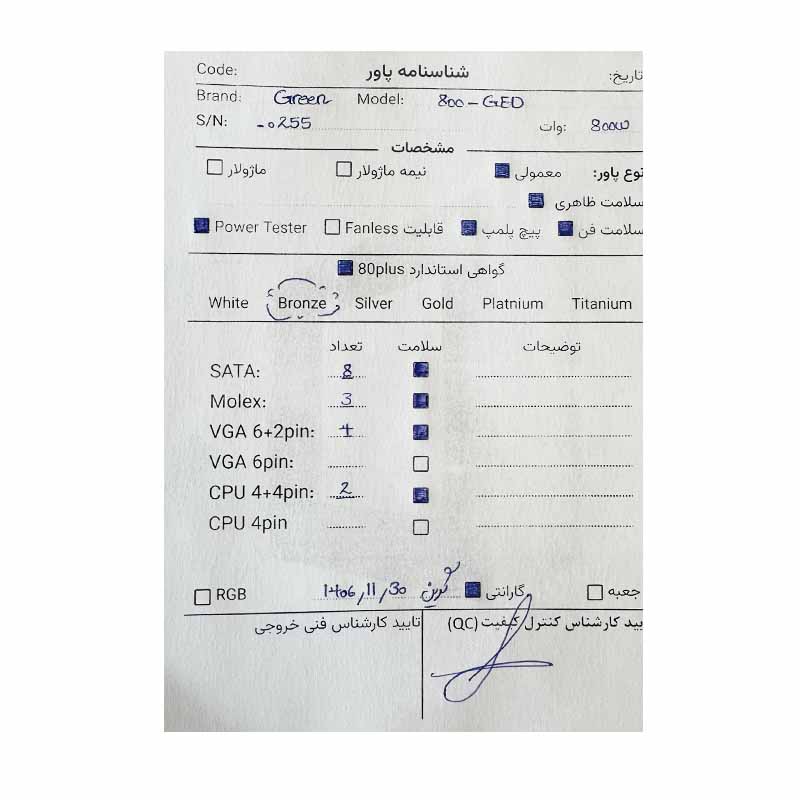 Code: شناسنامه پاور تاریخ:
Brand: Green Model: 800-GED
S/N: -0255 وات: 800W
مشخصات
نوع پاور: معمولی نیمه ماژولار ماژولار
سلامت ظاهری
سلامت فن پیچ پلمپ قابلیت Fanless Power Tester
گواهی استاندارد 80plus
White Bronze Silver Gold Platnium Titanium
تعداد سلامت توضیحات
SATA: 8
Molex: 3
VGA 6+2pin: 4
VGA 6pin:
CPU 4+4pin: 2
CPU 4pin
جعبه گارانتی گرین 1406/11/30 RGB
یید کارشناس کنترل کیفیت (QC) تایید کارشناس فنی خروجی